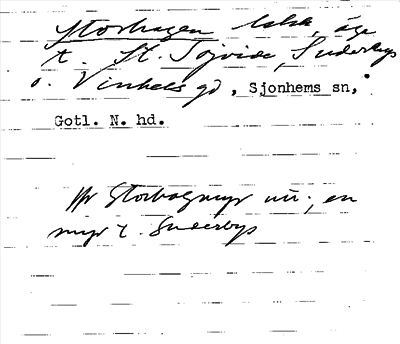 Storhagen
t. St. Sojvide, Suderbys
o. Vinhels gd, Sjonhems sn,
Gotl. N. hd.
Storhagmyr en
myr t. Suderbys